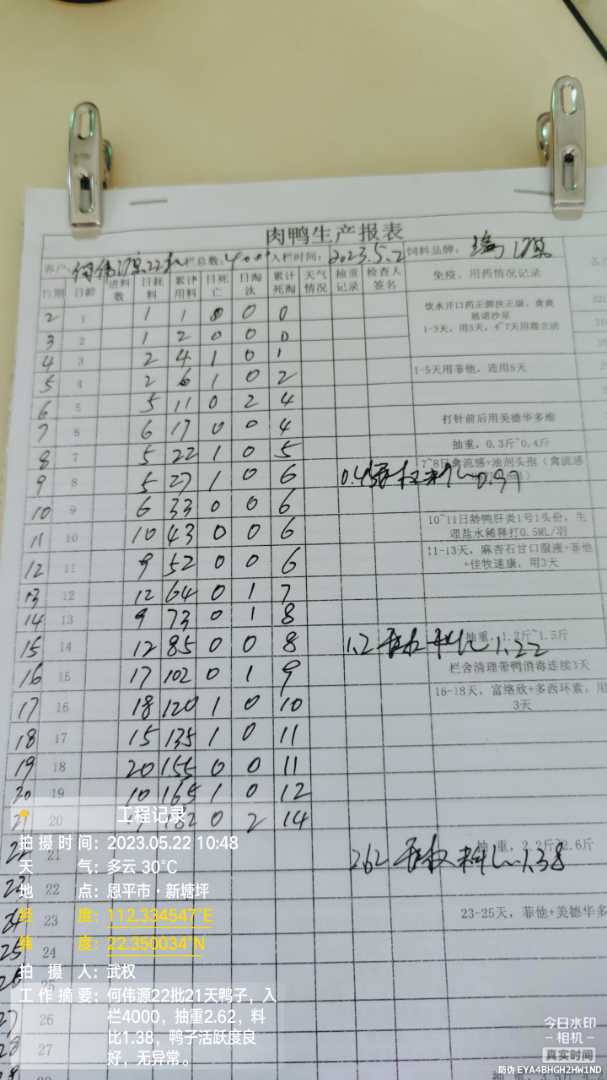 肉鸭生产报表
客户: 何伟源22批 栏总数: 4000 入栏时间: 2023.5.2 饲料品牌:
日期 日龄 进料数 日耗料 累计用料 日死亡 日淘汰 累计死淘 天气情况 抽重记录 检查人签名 免疫、用药情况记录
2 1 1 1 0 0 0
3 2 1 2 0 0 0
4 3 2 4 1 0 1
5 4 2 6 1 0 2 1-5天用菲他，连用5天
6 5 5 11 0 2 4
7 6 6 17 0 0 4 打针前后用美德华多维
8 7 5 22 1 0 5 抽重，0.3斤~0.4斤
9 8 5 27 1 0 6 0.45 武权 料比0.91
10 9 6 33 0 0 6
11 10 10 43 0 0 6 10~11日龄鸭肝炎1号1头份，生理盐水稀释打0.5ML/羽
12 11 9 52 0 0 6 11-13天，麻杏石甘口服液+菲他+佳牧速康，用3天
13 12 12 64 0 1 7
14 13 9 73 0 1 8
15 14 12 85 0 0 8 1.2 武权 料比1.22 抽重，1.2斤~1.5斤
16 15 17 102 0 1 9 栏舍清理带鸭消毒连续3天
17 16 18 120 1 0 10 16-18天，富络欣+多西环素，用3天
18 17 15 135 1 0 11
19 18 20 155 0 0 11
20 19 10 165 1 0 12
21 20 182 0 2 14
22 21 262 武权 料比1.38 抽重，2.2斤~2.6斤
23 22
24 23 23-25天，菲他+美德华多
25 24
26
27 26
28 27
工程记录
拍摄时间: 2023.05.22 10:48
天气: 多云 30℃
地点: 恩平市·新塘坪
经度: 112.334547°E
纬度: 22.350034°N
拍摄人: 武权
工作摘要: 何伟源22批21天鸭子，入
栏4000，抽重2.62，料
比1.38，鸭子活跃度良
好，无异常。
今日水印
相机
真实时间
防伪 EYA4BHGH2HW1ND